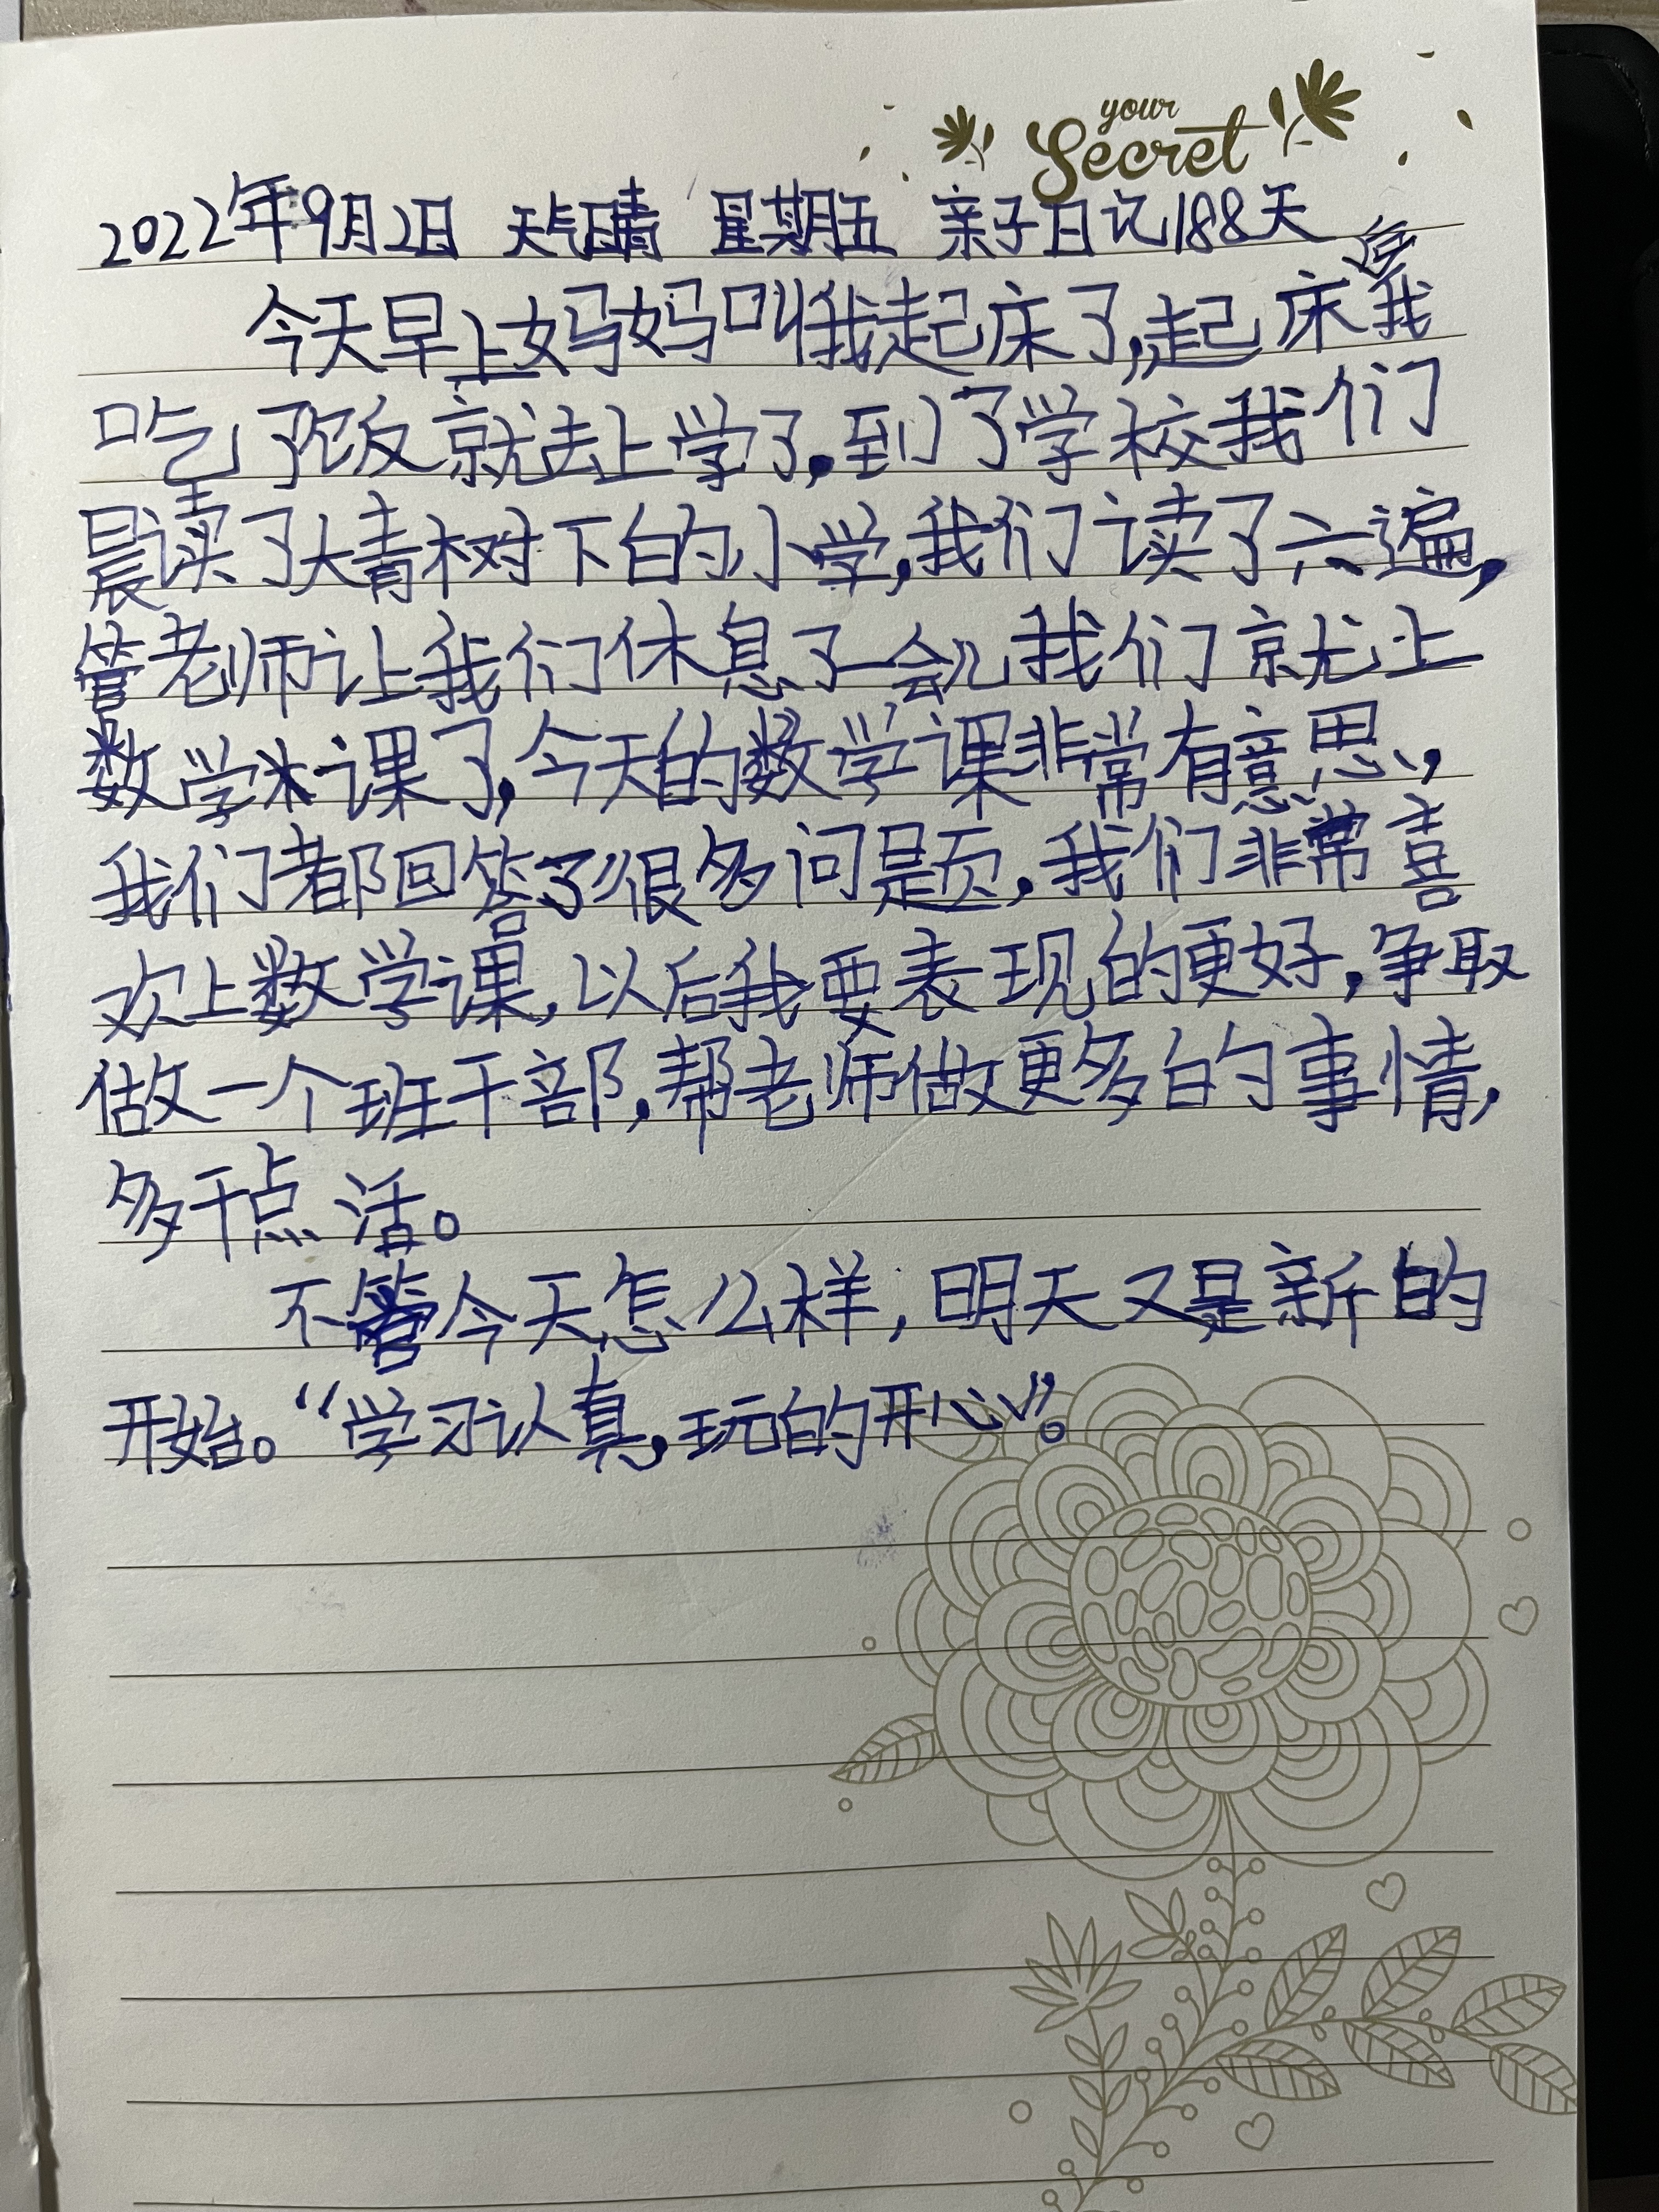 your
Secret
2022年9月2日 天气晴 星期五 亲子日记188天
今天早上妈妈叫我起床了,起床后我
吃了饭就去上学了,到了学校我们
晨读了大青树下的小学,我们读了六遍,
管老师让我们休息了一会儿我们就上
数学课了,今天的数学课非常有意思,
我们都回答了很多问题,我们非常喜
欢上数学课,以后我要表现的更好,争取
做一个班干部,帮老师做更多的事情,
多干点活。
不管今天怎么样,明天又是新的
开始。“学习认真,玩的开心”。